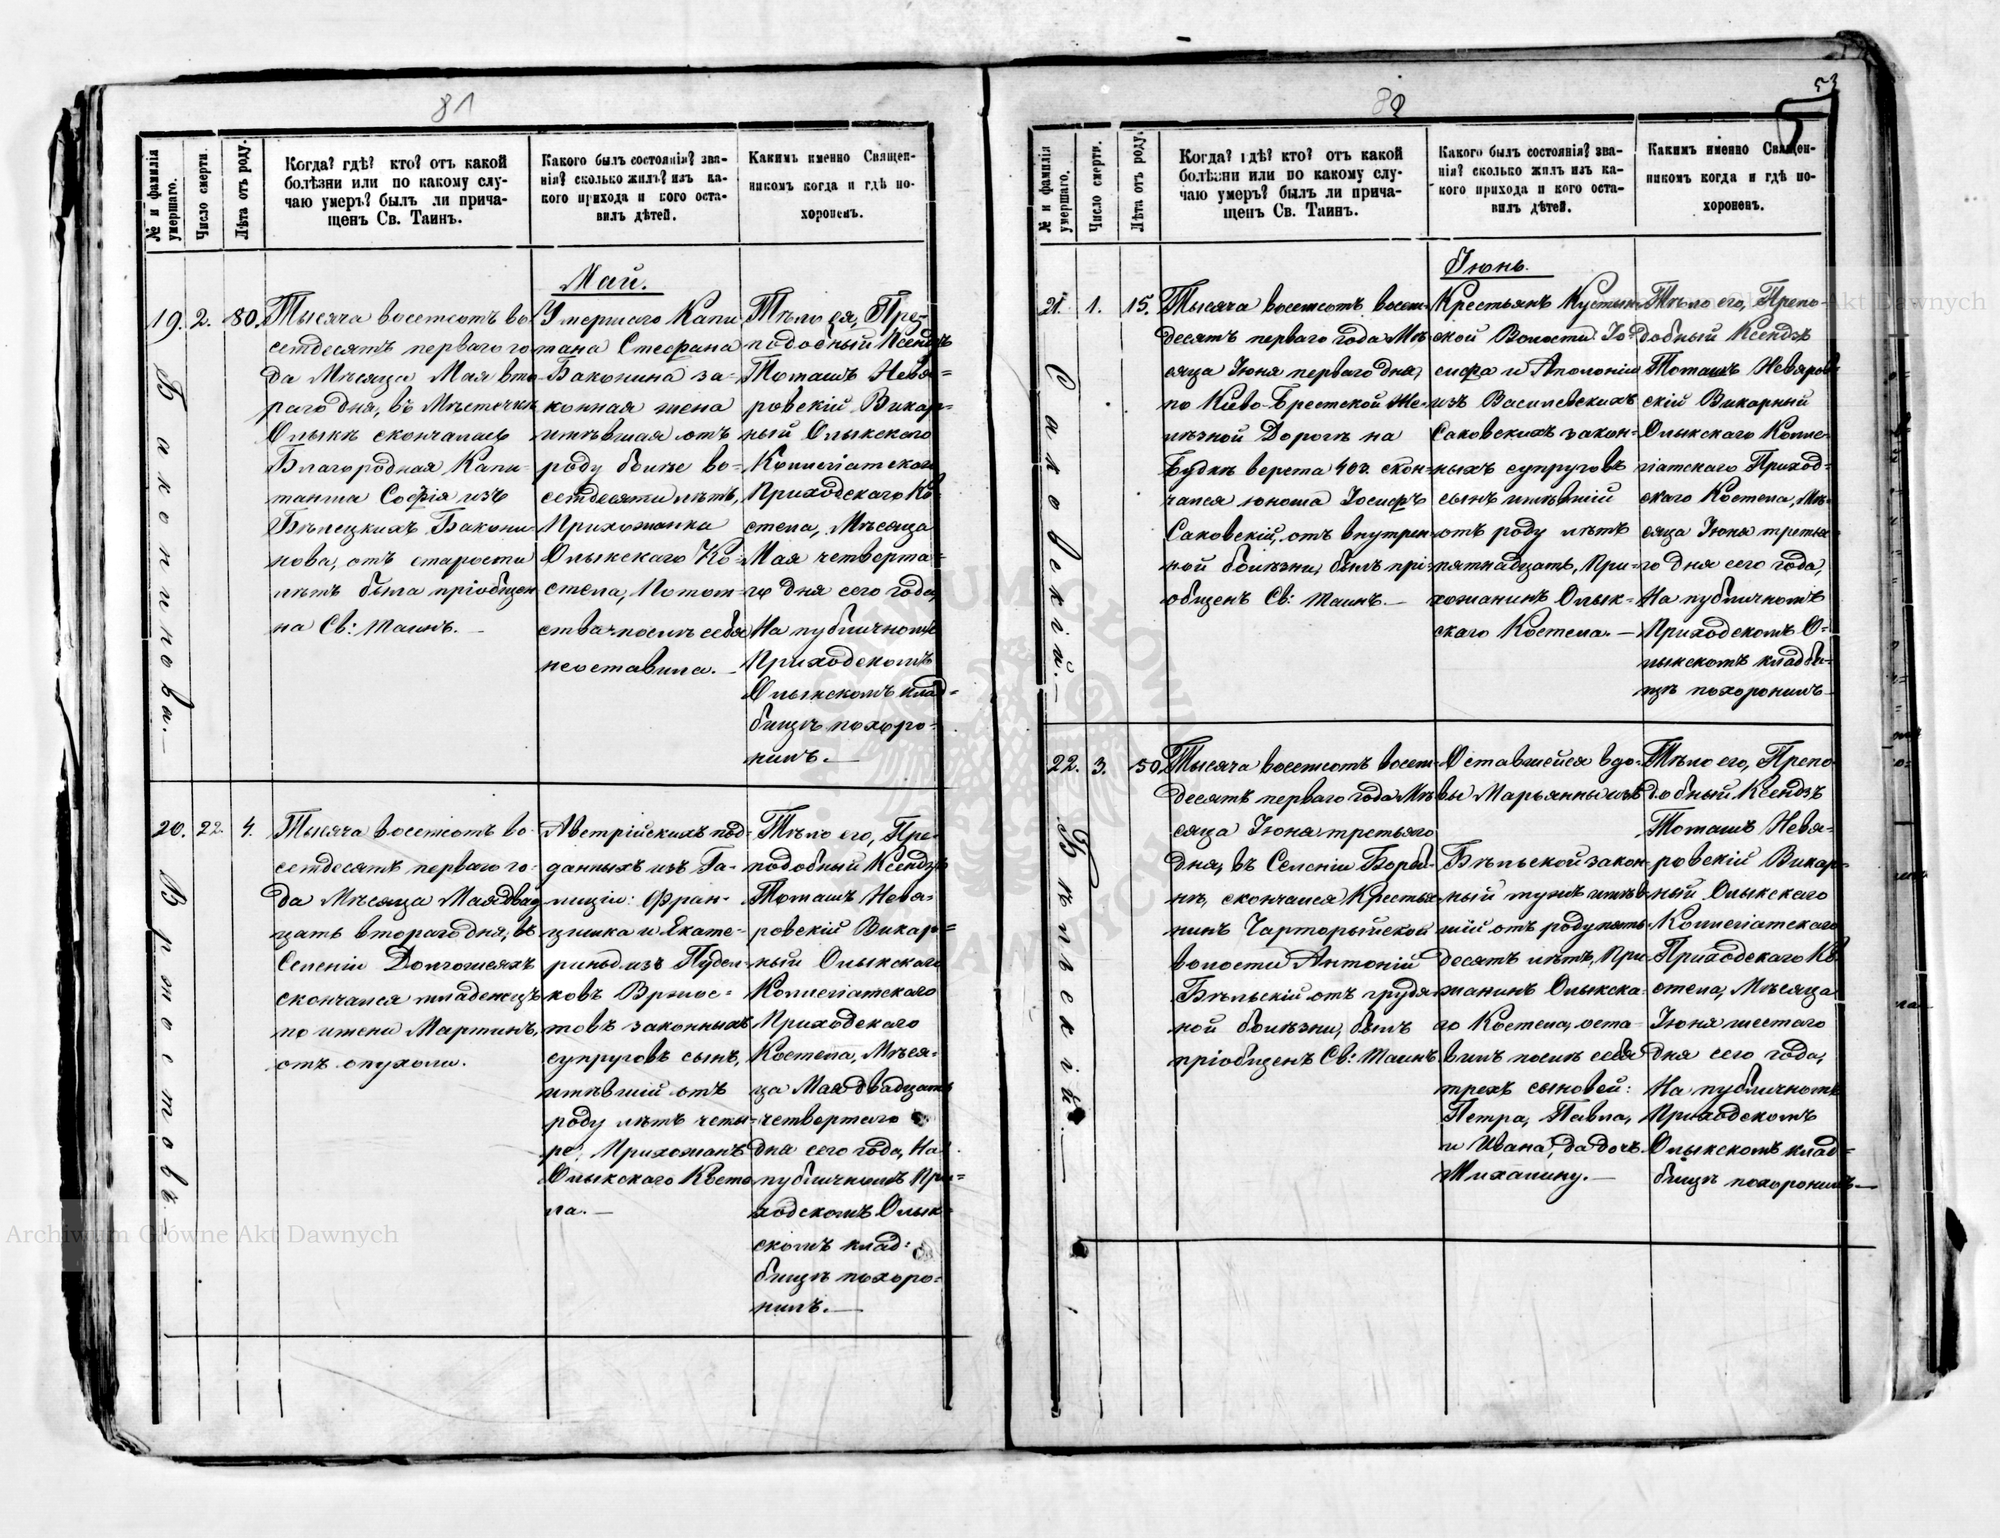 81
№ и фамилія умершаго.
Число смерти.
Лѣта отъ роду.
Когда? гдѣ? кто? отъ какой
болѣзни или по какому слу-
чаю умеръ? былъ ли прича-
щенъ Св. Таинъ.
Какого былъ состоянія? зва-
нія? сколько жилъ? изъ ка-
кого прихода и кого оста-
вилъ дѣтей.
Какимъ именно Священ-
никомъ когда и гдѣ по-
хороненъ.
Май.
19.
Баконинова.—
2.
80.
Тысяча восемсотъ во-
семдесятъ перваго го-
да Мѣсяца Мая вто-
раго дня, въ Мѣстечкѣ
Олыкѣ скончалась
Благородная Капи-
танша Софія изъ
Бѣлецкихъ Бакони-
нова, отъ старости
лѣтъ была пріобщен-
на Св: Таинъ.—
Умершаго Капи-
тана Стефана
Баконина за-
конная жена
имѣвшая отъ
роду болѣе во-
семдесяти лѣтъ,
Прихожанка
Олыкскаго Ко-
стела, Потом-
ства послѣ себя
неоставила.—
Тѣло ея, Пре-
подобный Ксендзъ
Томашъ Невя-
ровскій Викар-
ный Олыкскаго
Коллегіатскаго
Приходскаго Ко-
стела, Мѣсяца
Мая четверта-
го дня сего года,
На публичномъ
Приходскомъ
Олыкскомъ клад-
бищѣ похоро-
нилъ.—
20.
Вржостовъ.—
22.
4.
Тысяча восемсотъ во-
семдесятъ перваго го-
да Мѣсяца Мая двад-
цать втораго дня, въ
Селеніи Долгошеяхъ
скончался младенецъ
по имени Мартинъ,
отъ опухоли.
Австрійскихъ под-
данныхъ изъ Га-
лиціи: Фран-
цишка и Екате-
рины изъ Пудел-
ковъ Вржос-
товъ законныхъ
супруговъ сынъ,
имѣвшій отъ
роду лѣтъ четы-
ре, Прихожанъ
Олыкскаго Косте-
ла.—
Тѣло его, Пре-
подобный Ксендзъ
Томашъ Невя-
ровскій Викар-
ный Олыкскаго
Коллегіатскаго
Приходскаго
Костела, Мѣся-
ца Мая двадцать
четвертаго
дня сего года, На
публичномъ При-
ходскомъ Олык-
скомъ клад-
бищѣ похоро-
нилъ.—
82
53
№ и фамилія умершаго.
Число смерти.
Лѣта отъ роду.
Когда? гдѣ? кто? отъ какой
болѣзни или по какому слу-
чаю умеръ? былъ ли прича-
щенъ Св. Таинъ.
Какого былъ состоянія? зва-
нія? сколько жилъ? изъ ка-
кого прихода и кого оста-
вилъ дѣтей.
Какимъ именно Священ-
никомъ когда и гдѣ по-
хороненъ.
Іюнь.
21.
Саковскій.—
1.
15.
Тысяча восемсотъ восем-
десятъ перваго года Мѣ-
сяца Іюня перваго дня,
по Кіево-Брестской Же-
лѣзной Дорогѣ на
Будкѣ верста 402. скон-
чался юноша Іосифъ
Саковскій, отъ внутрен-
ной болѣзни, былъ прі-
общенъ Св: Таинъ.—
Крестьянъ
ской Волости Іо-
сифа и Аполоніи
изъ Василевскихъ
Саковскихъ закон-
ныхъ супруговъ
сынъ имѣвшій
отъ роду лѣтъ
пятнадцать, При-
хожанинъ Олык-
скаго Костела.—
Тѣло его, Препо-
добный Ксендзъ
Томашъ Невяров-
скій Викарный
Олыкскаго Колле-
гіатскаго Приход-
скаго Костела, Мѣ-
сяца Іюня третья-
го дня сего года,
На публичномъ
Приходскомъ О-
лыкскомъ кладби-
щѣ похоронилъ—
22.
Бѣльскій.—
3.
50.
Тысяча восемсотъ восем-
десятъ перваго года Мѣ-
сяца Іюня третьяго
дня, въ Селеніи
скончался Крестья-
нинъ Чарторыйской
волости Антоній
Бѣльскій отъ грудя-
ной болѣзни, былъ
пріобщенъ Св: Таинъ.
Оставшейся вдо-
вы Марьянны изъ
Бѣльской закон-
ный мужъ имѣв-
шій отъ роду пять-
десятъ лѣтъ, При-
жанинъ Олыкска-
го Костела, оста-
вилъ послѣ себя
трехъ сыновей:
Петра, Павла,
и Ивана, да дочь
Михалину.—
Тѣло его, Препо-
добный Ксендзъ
Томашъ Невя-
ровскій Викар-
ный Олыкскаго
Коллегіатскаго
Приходскаго Ко-
стела, Мѣсяца
Іюня шестаго
дня сего года,
На публичномъ
Приходскомъ
Олыкскомъ клад-
бищѣ похоронилъ—
Archiwum Główne Akt Dawnych